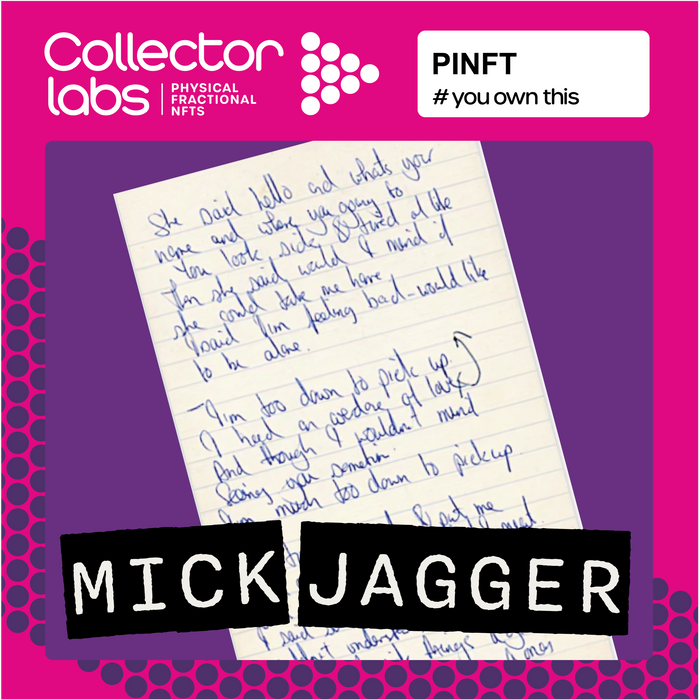 Collector
labs
PHYSICAL
FRACTIONAL
NFTS
PINFT
# you own this
She said hello and whats your
name and where you going to
You look sick & tired of life
then she said would I mind if
she could take me home
I said I'm feeling bad - would like
to be alone.
I'm too down to pick up.
I need an of love
And though I wouldn't mind
Seeing you sometim
I'm much too down to pick up.
& me
MICK JAGGER
I said
understa
things